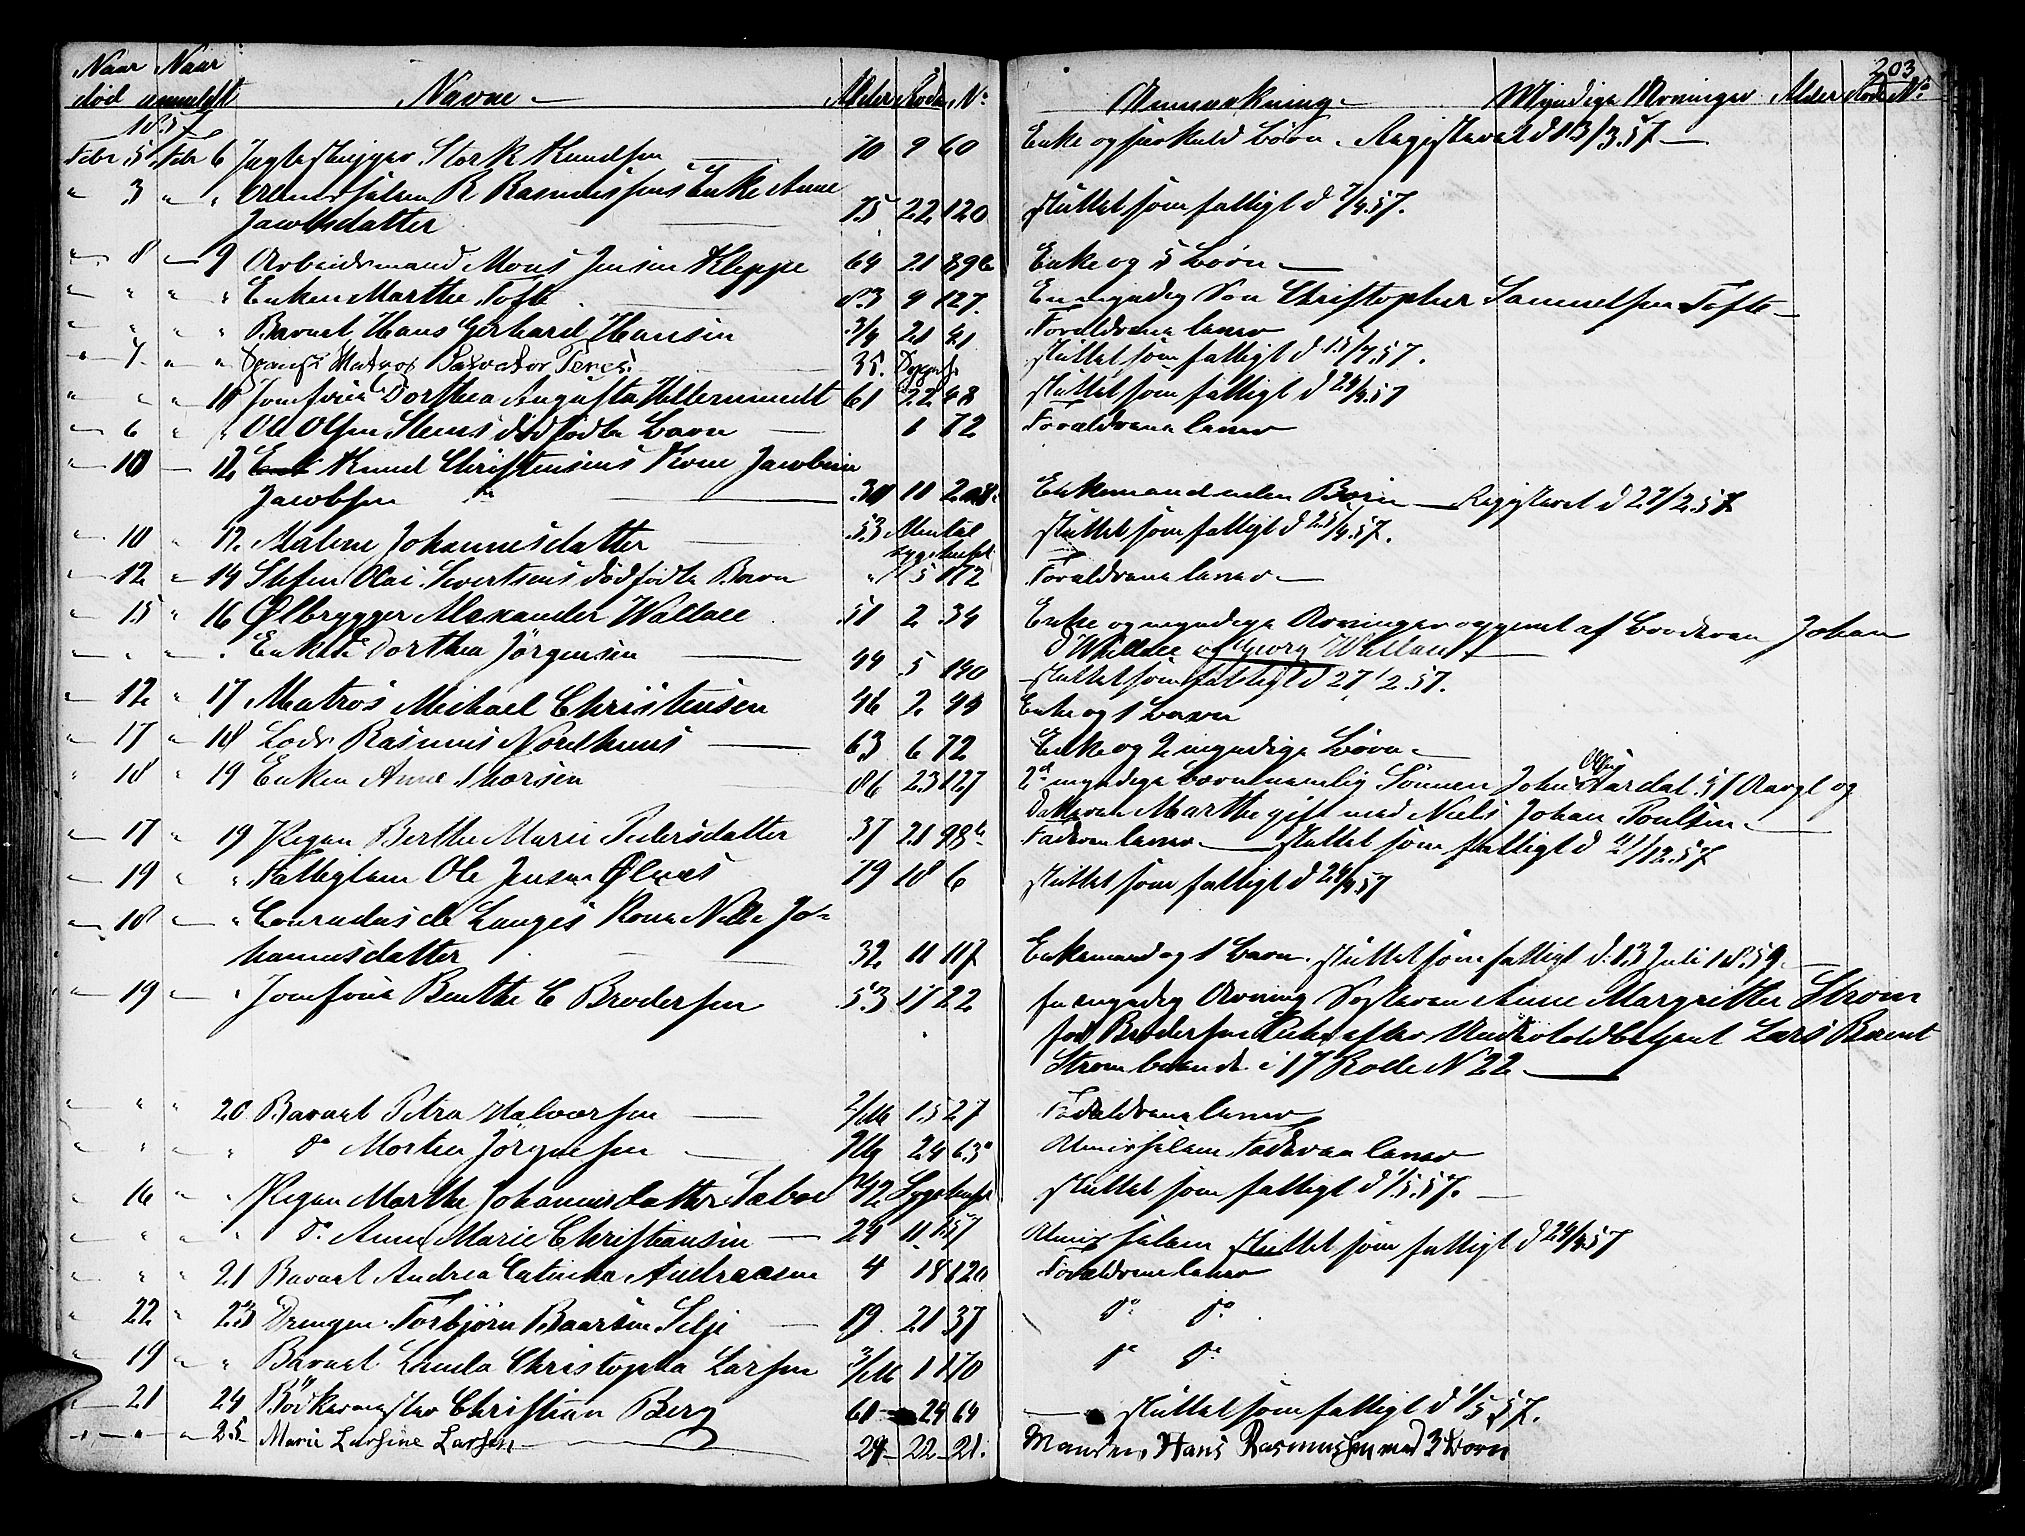 203
Naar død Naar anmeldt Navne Alder Rode No Anmærkning Myndige Arvinger Alder Rode No
1857
Febr 5 Febr 6 Stork Knudsen 70 9 60 Enke og børn. Registreret d 13/3.57
" 3 " " R Rasmussens Enke Anne
Jacobsdatter 75 22 120 sluttet som fattigt d 7/4.57.
" 8 " 9 Arbeidsmand Mons Jensen Kleppe 64 21 89b Enke og 5 børn
" " " " Enken Marthe Tofte 83 9 127. En myndig Søn Christopher Samuelsen Tofte
" " " Barnet Hans Gerhard Hansen 3/4 21 41 Forældrene lever
" 7 " " Spansk Matros Salvator Peres 35. sluttet som fattigt d 15/7.57.
" " " 10 Jomfrue Dorthea Augusta Hellermundt 61 22 48 sluttet som fattigt d 29/4.57
" 6 " " Ole Olsen Stens dødfødte barn 1 72 Forældrene lever
" 10 " 12 Knud Christensens Kone Jacobine
Jacobsen 30 11 Enkemand uden Børn Registreret d 27/2.57
" 10 " 12. Malene Johannesdatter 53 Mental sygehuset sluttet som fattigt d 25/4.57.
" 12 " 14 Stefen Olai Sivertsens dødfødte Barn " 5 172 Forældrene lever
" 15 " 16 Ølbrygger Alexander Wallace 51 2 34 Enke og myndige Arvinger opgivet af broderen Johan
" " " " Enken Dorthea Jörgensen 44 5 140 d Wallace og Georg Wallace
sluttet som fattigt d 27/2.57.
" 12 " 17 Matros Michael Christensen 46 2 44 Enke og 1 barn
" 17 " 18 Lods Rasmus Nordhuus 63 6 72 Enke og 2 myndige børn
" 18 " 19 Enken Anne Thorsen 86 23 127 2de myndige børn nemlig Sönnen John Aardal 51 Aar gl og
Datteren Marthe gift med Niels Johan Poulsen
" 17 " 19 Pigen Berthe Marie Pedersdatter 37 21 98b Faderen lever sluttet som fattigt d 21/12.57
" 19 " " Fattiglem Ole Jensen Ølnes 79 18 6 sluttet som fattigt d 24/4.57
" 18 " " Conradus de Langes Kone Nille Jo-
hannesdatter 32 11 117 Enkemand og 1 barn. sluttet som fattigt d. 13 Juli 1859.
" 19 " " Jomfrue Benthe C Brodersen 53 17 22 en myndig Arving Søsteren Anne Margrethe Strøm
fød Brodersen Enke efter Lars Berent
Strøm boende i 17 Rode N 22
" " " 20 Barnet Petra Halvorsen 2/M 15 27 Forældrene lever
" " " " do Morten Jörgensen 24 63a Faderen lever
" 16 " " Pigen Marthe Johannesdatter Sæboe Sygehuset sluttet som fattigt d 1/5.57.
" " " " do Anne Marie Christiansen 24 11 157 sluttet som fattigt d 24/4.57
" " " 21 Barnet Andrea Catinka Andreasen 4 18 120 Forældrene lever
" 22 " 23 Drengen Torbjörn Baarsen Selje 19 21 37 do do
" 19 " " Barnet Christopha Larsen 3/M 1 170 do do
" 21 24 Bödkermester Christian Berg 61 24 64 sluttet som fattigt d 1/5.57.
" " " 25 Marie Larsine Larsen 24 22 21. Manden Hans Rasmussen med 3 børn